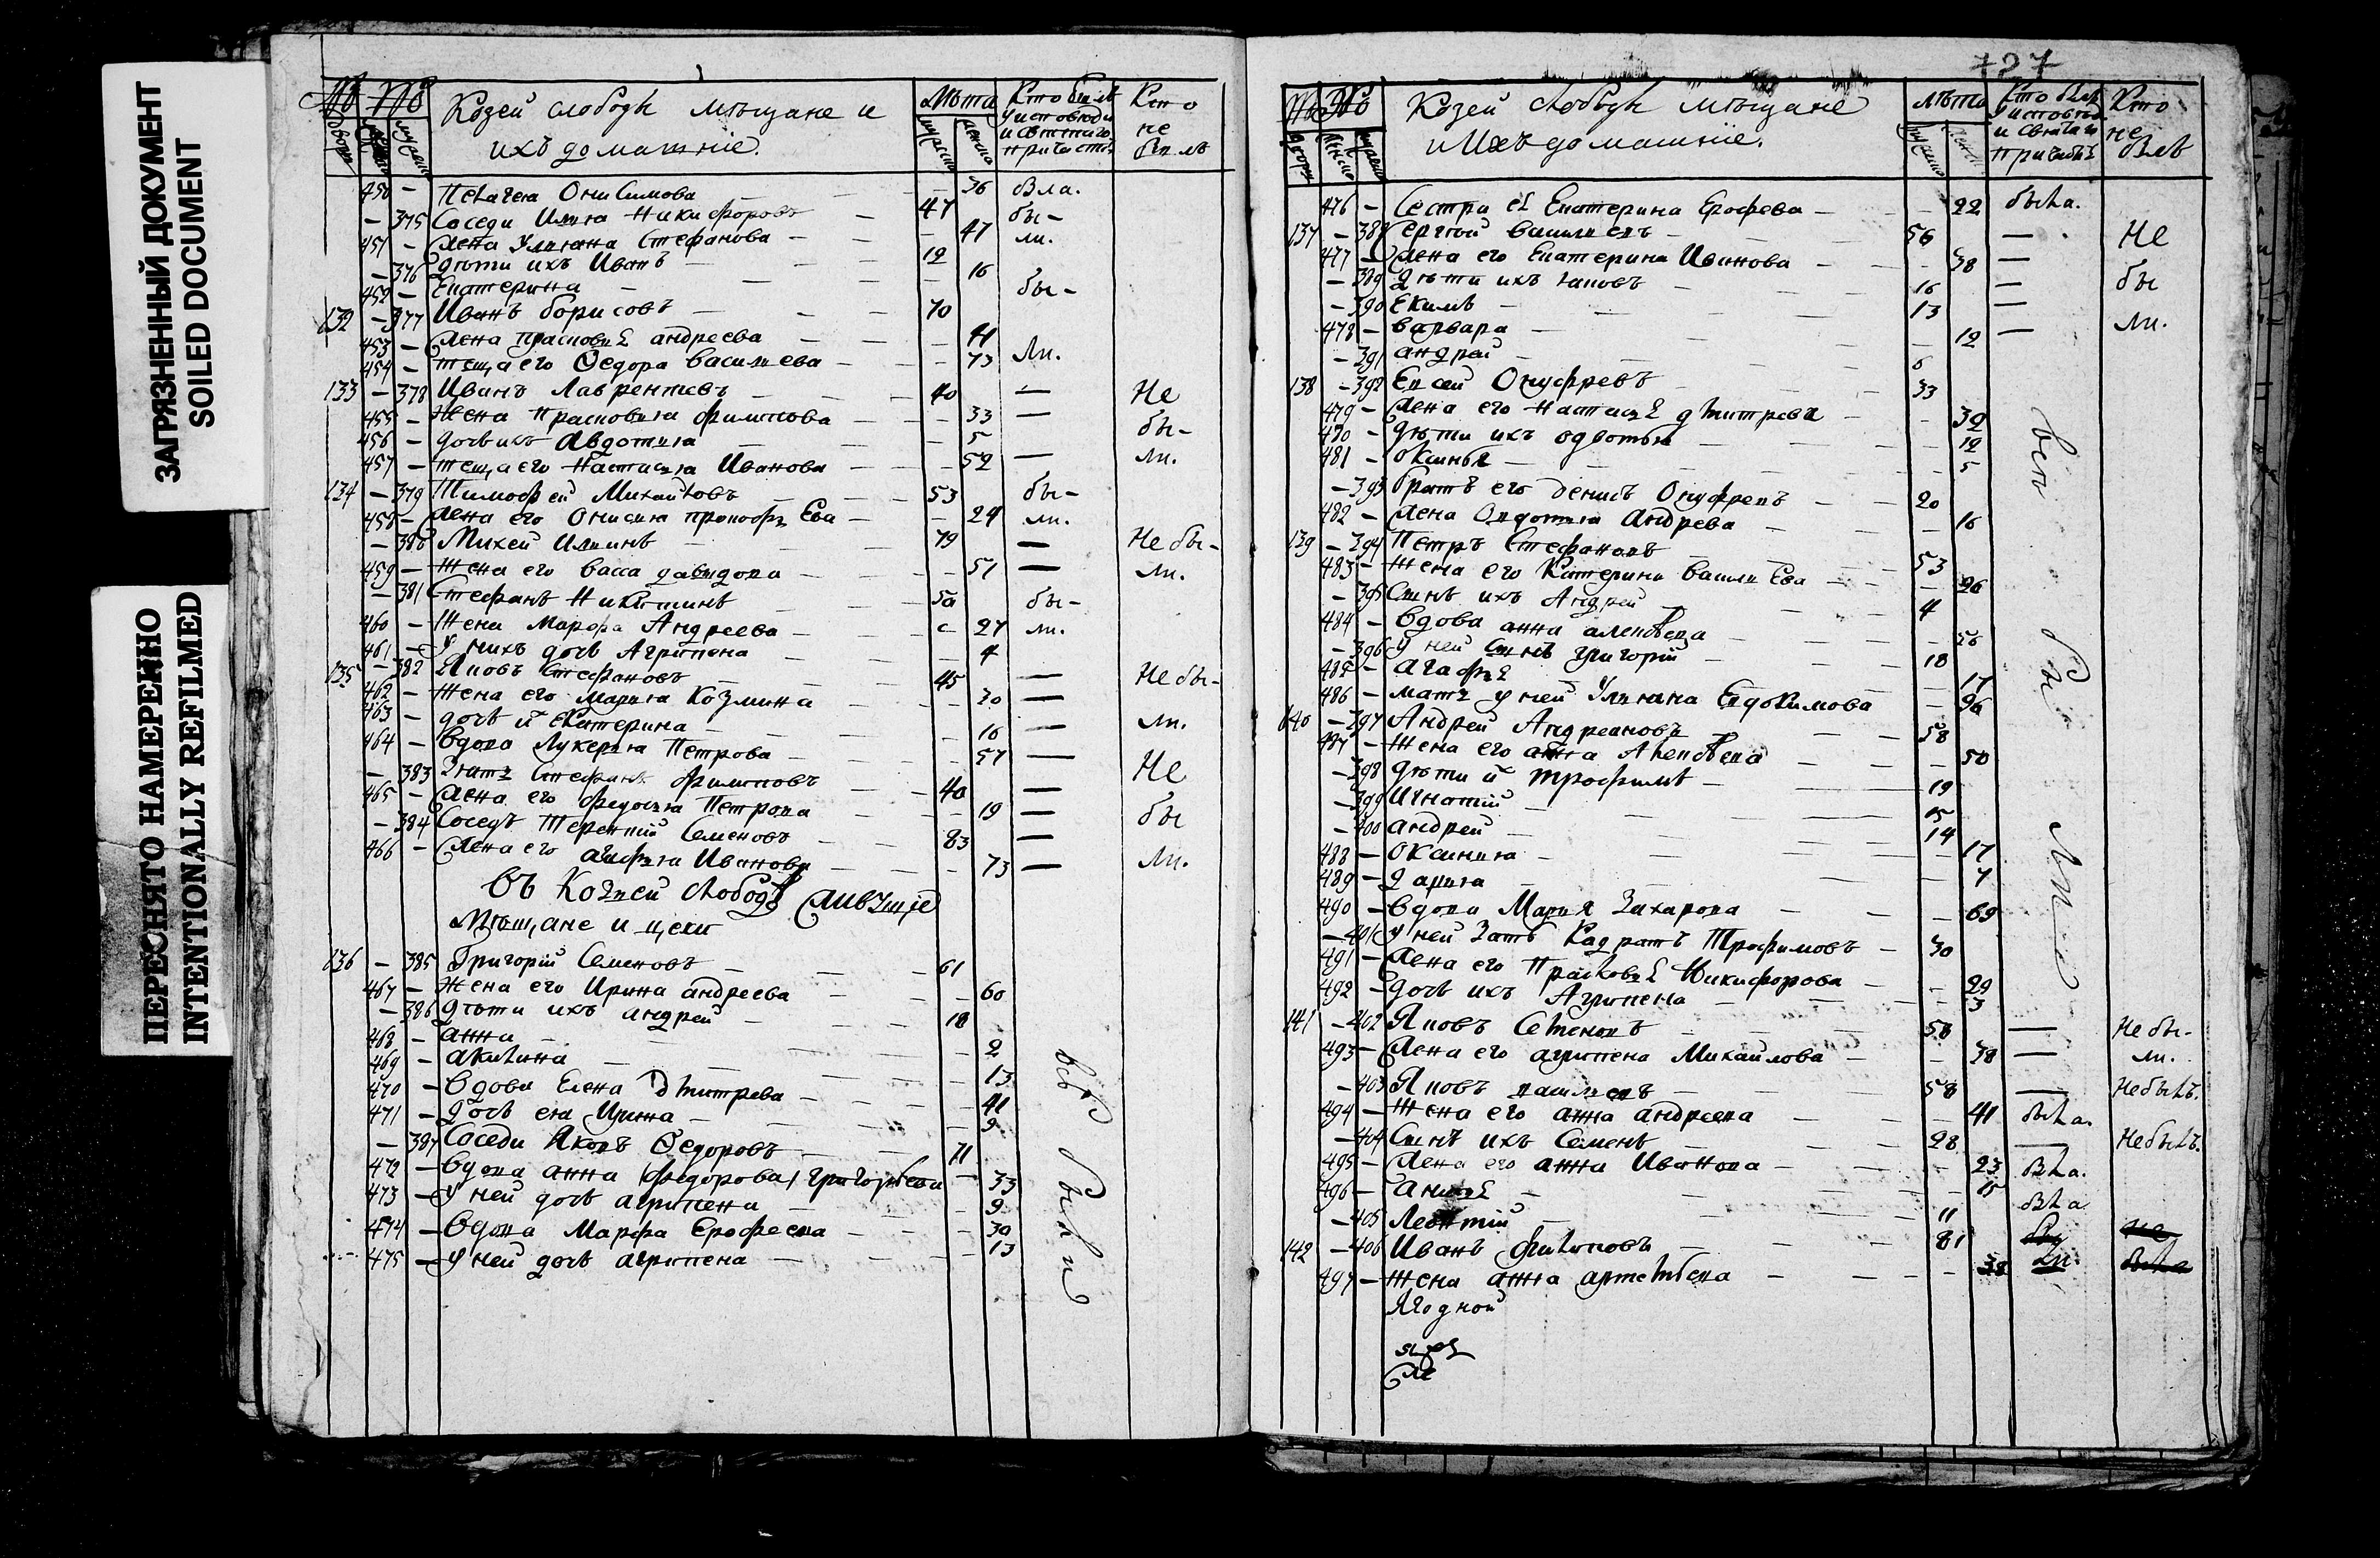 ЗАГРЯЗНЕННЫЙ ДОКУМЕНТ
SOILED DOCUMENT
ПЕРЕСНЯТО НАМЕРЕННО
INTENTIONALLY REFILMED
Козей слободы мѣщане и
ихъ домашніе.
Лѣта
Кто былъ у исповѣди и святаго причастія
Кто не былъ
450 — Пелагея Онисимова — 36 была.
— 375 Соседи Илья Никифоровъ — 47 бы-
451 — Жена Ульяна Стефанова — 47 ли.
— 376 Дѣти ихъ Иванъ — 12
452 — Екатерина — 16 бы-
132 — 377 Иванъ Борисовъ — 70
453 — Жена Прасковья Андреева — 41
454 — теща его Ѳедора Васильева — 73 ли.
133 — 378 Иванъ Лаврентьевъ — 40 — Не
455 — Жена Прасковья Филипова — 33 —
456 — дочь ихъ Авдотья — 5 бы-
457 — теща его Настасья Иванова — 52 — ли.
134 — 379 Тимофей Михайловъ — 53 бы-
458 — Жена его Онисья Прокофьева — 24 ли.
— 380 Михей Ильинъ — 79 — Не бы-
459 — Жена его Васса Давыдова — 51 — ли.
— 381 Стефанъ Никитинъ — 50 бы-
460 — Жена Марфа Андреева — 27 ли.
461 — У нихъ дочь Агрипена — 4
135 — 382 Яковъ Стефановъ — 45 — Не бы-
462 — Жена его Марья Козмина — 30 —
463 — дочь й Екатерина — 16 ли.
464 — Вдова Лукерья Петрова — 57 —
— 383 Зять Стефанъ Филиповъ — 40 — Не
465 — Жена его Федосья Петрова — 19 —
— 384 Соседъ Терентій Семеновъ — 83 — бы
466 — Жена его Агафья Иванова — 73 — ли.
Въ Козьей слободѣ живущіе
Мѣщане и цехи
136 — 385 Григорій Семеновъ — 61
467 — Жена его Ирина Андреева — 60
— 386 Дѣти ихъ Андрей — 18
468 — Анна — 2
469 — Акилина — 13
470 — Вдова Елена Дмитрева — 41
471 — дочь ея Ирина — 9
— 387 Соседи Яковъ Ѳедоровъ — 71
472 — Вдова Анна (Федорова) Григорьева — 33
473 — У ней дочь Агрипена — 9
474 — Вдова Марфа Ерофеева — 30
475 — У ней дочь Агрипена — 13
всѣ были
727
Козей слободы мѣщане
и ихъ домашніе.
Лѣта
Кто былъ у исповѣди и святаго причастія
Кто не былъ
476 — Сестра её Екатерина Ерофева — 22 была.
137 — 388 Сергей Васильевъ — 56 — Не
477 — Жена его Екатерина Иванова — 38 —
— 389 Дѣти ихъ Яковъ — 16 — бы
— 390 Екимъ — 13 —
478 — Варвара — 12 — ли.
— 391 Андрей — 6
138 — 392 Евсей Онуфревъ — 33
479 — Жена его Настасья Дмитрева — 32
480 — Дѣти ихъ Одвотья — 12
481 — Оксинья — 5
— 393 Братъ его Денисъ Онуфревъ — 20
482 — Жена Овдотья Андрева — 16
139 — 394 Петръ Стефановъ — 53
483 — Жена его Катерина Васильева — 26
— 395 Сынъ ихъ Андрей — 4
484 — Вдова Анна Алексѣева — 56
— 396 У ней сынъ Григорій — 18
485 — Агафья — 17
486 — мать у ней Ульяна Евдокимова — 96
140 — 397 Андрей Андреановъ — 58
487 — Жена его Анна Алексѣева — 50
— 398 Дѣти й Трофимъ — 19
— 399 Игнатій — 15
— 400 Андрей — 14
488 — Оксинья — 17
489 — Дарья — 7
490 — Вдова Марья Захарова — 69
— 401 У ней зять Кадратъ Трофимовъ — 30
491 — Жена его Прасковья Никифорова — 29
492 — дочь ихъ Агрипена — 3
141 — 402 Яковъ Семеновъ — 58 — Не бы-
493 — Жена его Агрипена Михайлова — 38 — ли.
— 403 Яковъ Васильевъ — 58 — Не былъ.
494 — Жена его Анна Андреева — 41 была.
— 404 Сынъ ихъ Семенъ — 28 — Не былъ.
495 — Жена его Анна Иванова — 23 была.
496 — Анисья — 15 была
— 405 Леонтій — 11
142 — 406 Иванъ Филиповъ — 81 бы не
497 — Жена Анна Артемьева — 38 ли. была
Ягодной
всѣ были